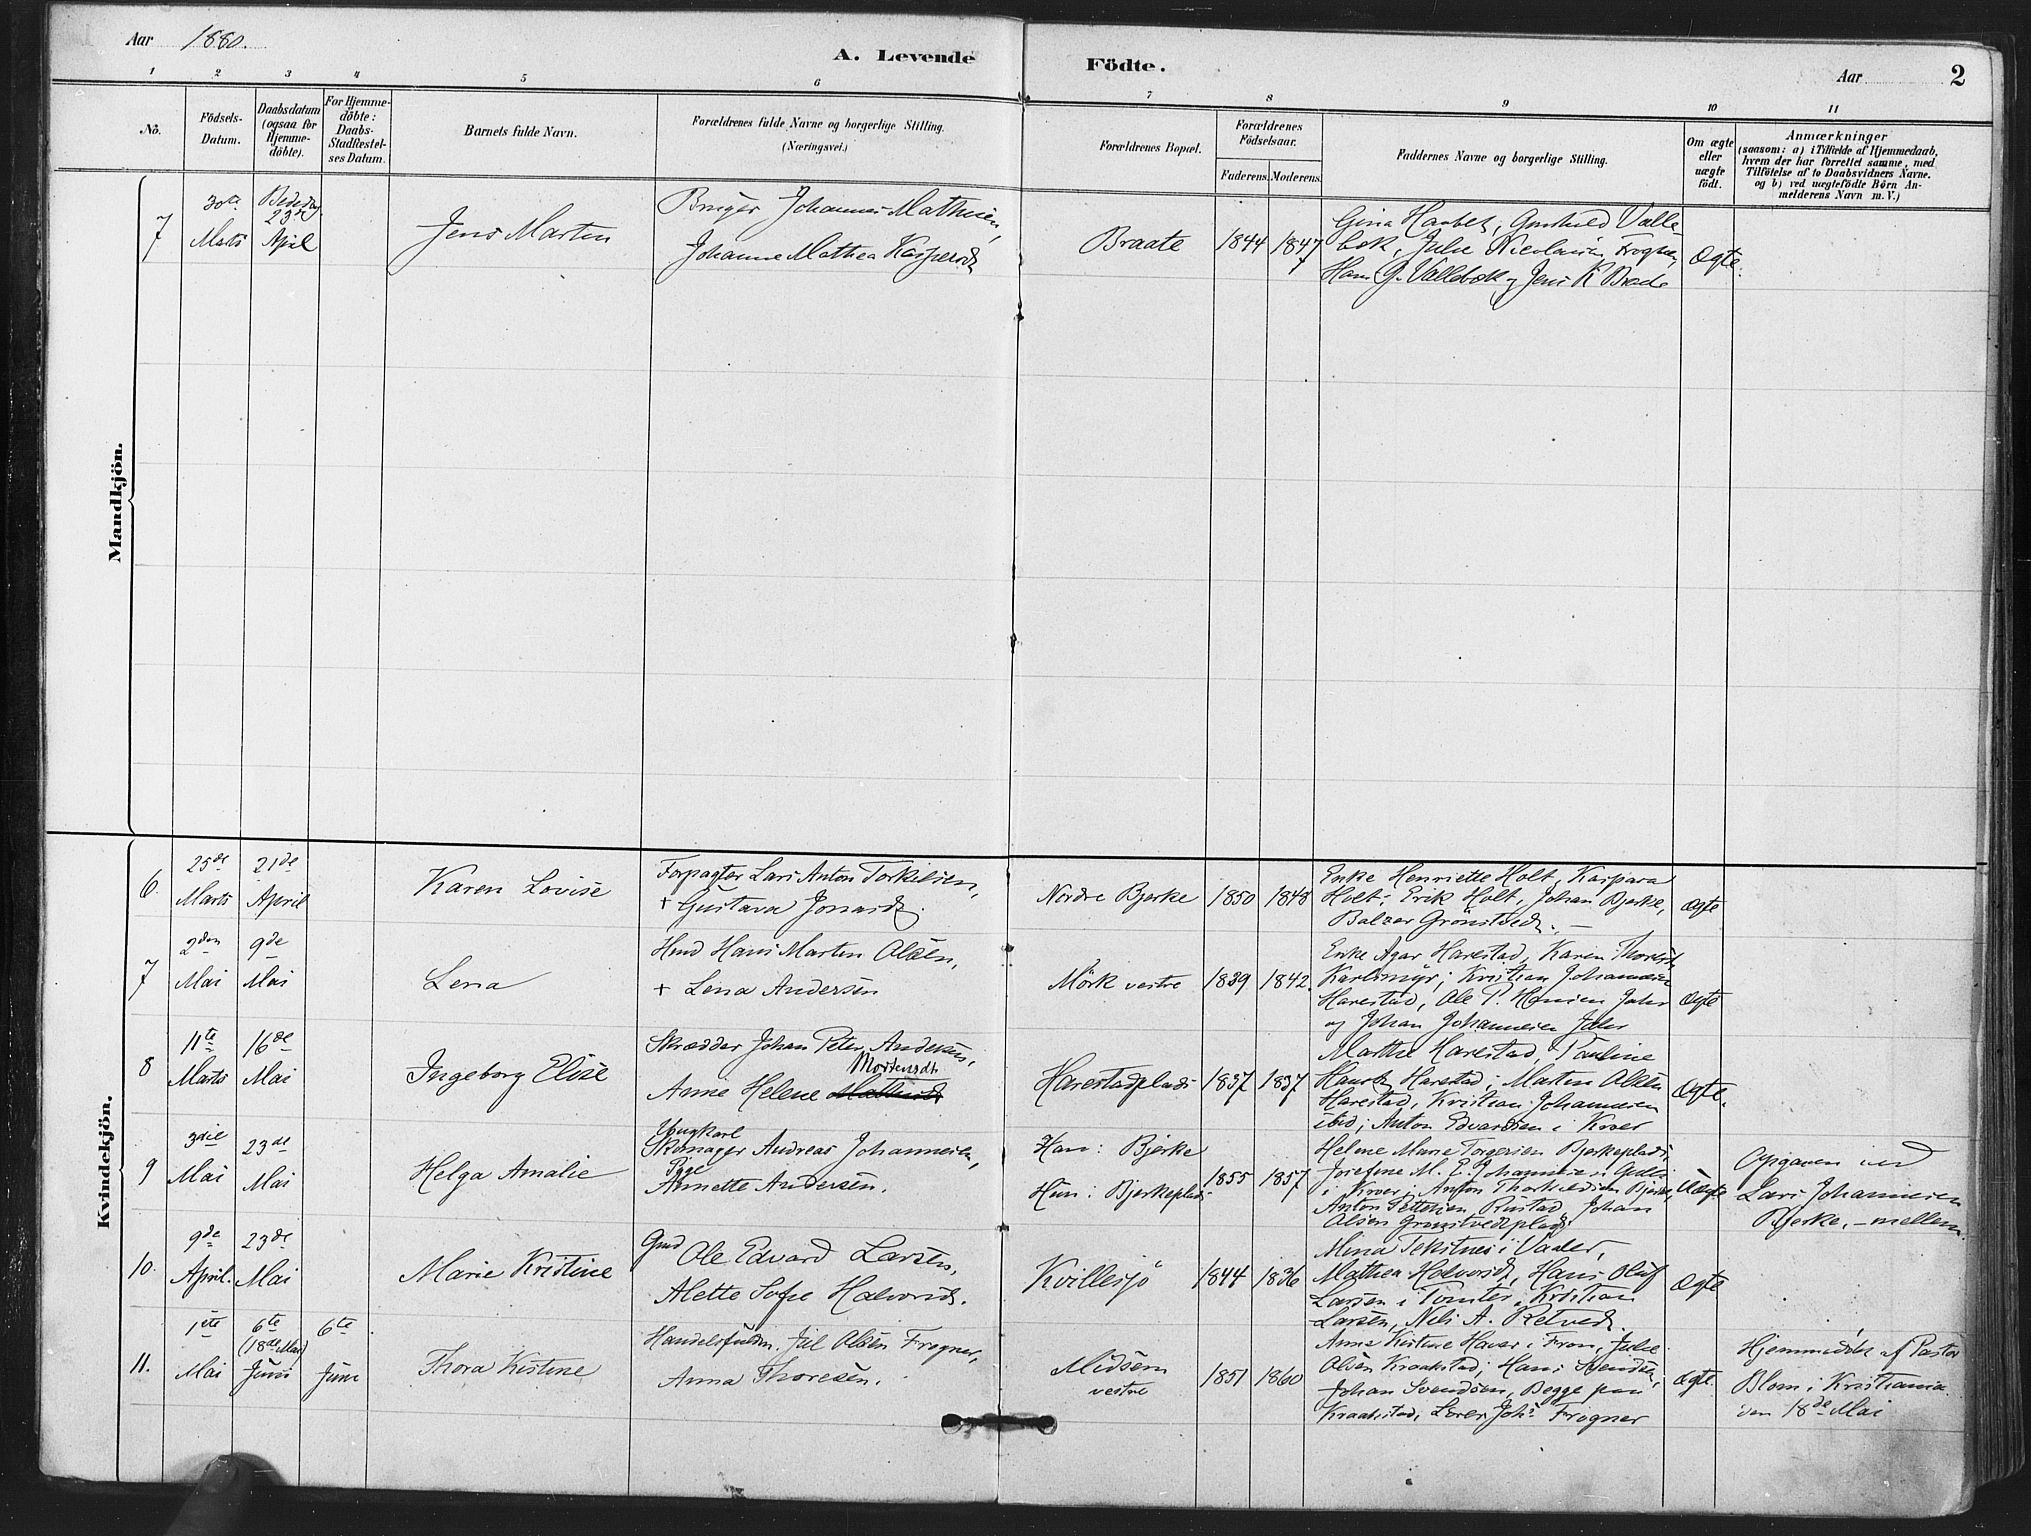 Aar 1880.
A. Levende Födte.
Aar
2
1 2 3 4 5 6 7 8 9 10 11
No.
Födsels-
Datum.
Daabsdatum
(ogsaa for
Hjemme-
döbte).
For Hjemme-
döbte:
Daabs-
Stadfestel-
ses Datum.
Barnets fulde Navn.
Forældrenes fulde Navne og borgerlige Stilling.
(Næringsvei.)
Forældrenes Bopæl.
Forældrenes
Födselsaar.
Faderens. Moderens.
Faddernes Navne og borgerlige Stilling.
Om ægte
eller
uægte
födt.
Anmærkninger
(saasom: a) i Tilfælde af Hjemmedaab,
hvem der har forrettet samme, med
Tilföielse af to Daabsvidners Navne.
og b) ved uægtefödte Börn An-
melderens Navn m. V.)
Mandkjön.
7
30te
Marts
Bededag
23de
April
Jens Martin
Bruger Johannes Mathisen,
Johanne Mathea Kaspersd.
Braate
1844
1847
Gina Haabet, Gunhild Valle-
bek, Julie Nicolaisen Frogner,
Hans G. Vallebek og Jens K Brade
Ægte.
Kvindekjön.
6
25de
Marts
21de
April
Karen Lovise
Forpagter Lars Anton Torkilsen,
+ Gustava Jonasd.
Nordre Bjerke
1850
1848
Enke Henriette Holt, Kaspara
Holt; Erik Holt, Johan Bjerke,
Balzer Grönstved. –
Ægte
7
2den
Mai
9de
Mai
Lena
Hmd Hans Martin Olsen,
+ Lena Andersen
Mörk vestre
1839
1842.
Enke Agar Harestad, Karen
Karlsmyr; Kristian Johannesen
Harestad, Ole T. Hansen Jaler
og Johan Johannesen Jaler
Ægte
8
11te
Marts
16de
Mai
Ingeborg Elise
Skrædder Johan Peter Andersen,
Mortensdt.
Anne Helene
Harestadplads
1837
1837
Marthe Harestad, Pauline
Harestad; Martin Olsen
Harestad, Kristian Johannesen
ibid; Anton Edvardsen i Kroer
Ægte.
9
3die
Mai
23de
Mai
Helga Amalie
Ungkarl
Skomager Andreas Johannesen,
Pige
Annette Andersen.
Han: Bjerke
Hun: Bjerkeplads
1855
1857
Helene Marie Torgersen Bjerkeplads,
Josefine M. E. Johannesen
i Kroer; Anton Thorkildsen Bjerke,
Anton Pettersen Rustad, Johan
Olsen Grönstvedsplads
Uægte
Opgaven ved
Lars Johannesen
Bjerke, – mellem.
10.
9de
April.
23de
Mai
Marie Kristine
Gmd
Ole Edvard Larsen,
Alette Sofie Halvorsd.
Kvillesjö
1844
1836
Mina Teksnes i Vaaler,
Mathea Halvorsd, Hans Oluf
Larsen i Tomter, Kristian
Larsen, Nils A. Retved.
Ægte
11.
1ste
Mai
6te
(18de Mai)
Juni
6te
Juni
Thora Kistine
Handelsfuldm. Jul Olsen Frogner,
Anna Thoresen.
Midsem
vestre
1851
1860
Anne Kistine Haver i Fron, Julie
Olsen Kraakstad; Hans Svendsen,
Johan Svendsen, Begge paa
Kraakstad, Lærer Johs Frogner
Ægte.
Hjemmedöbt af Pastor
Blom i Kristiania
den 18de Mai